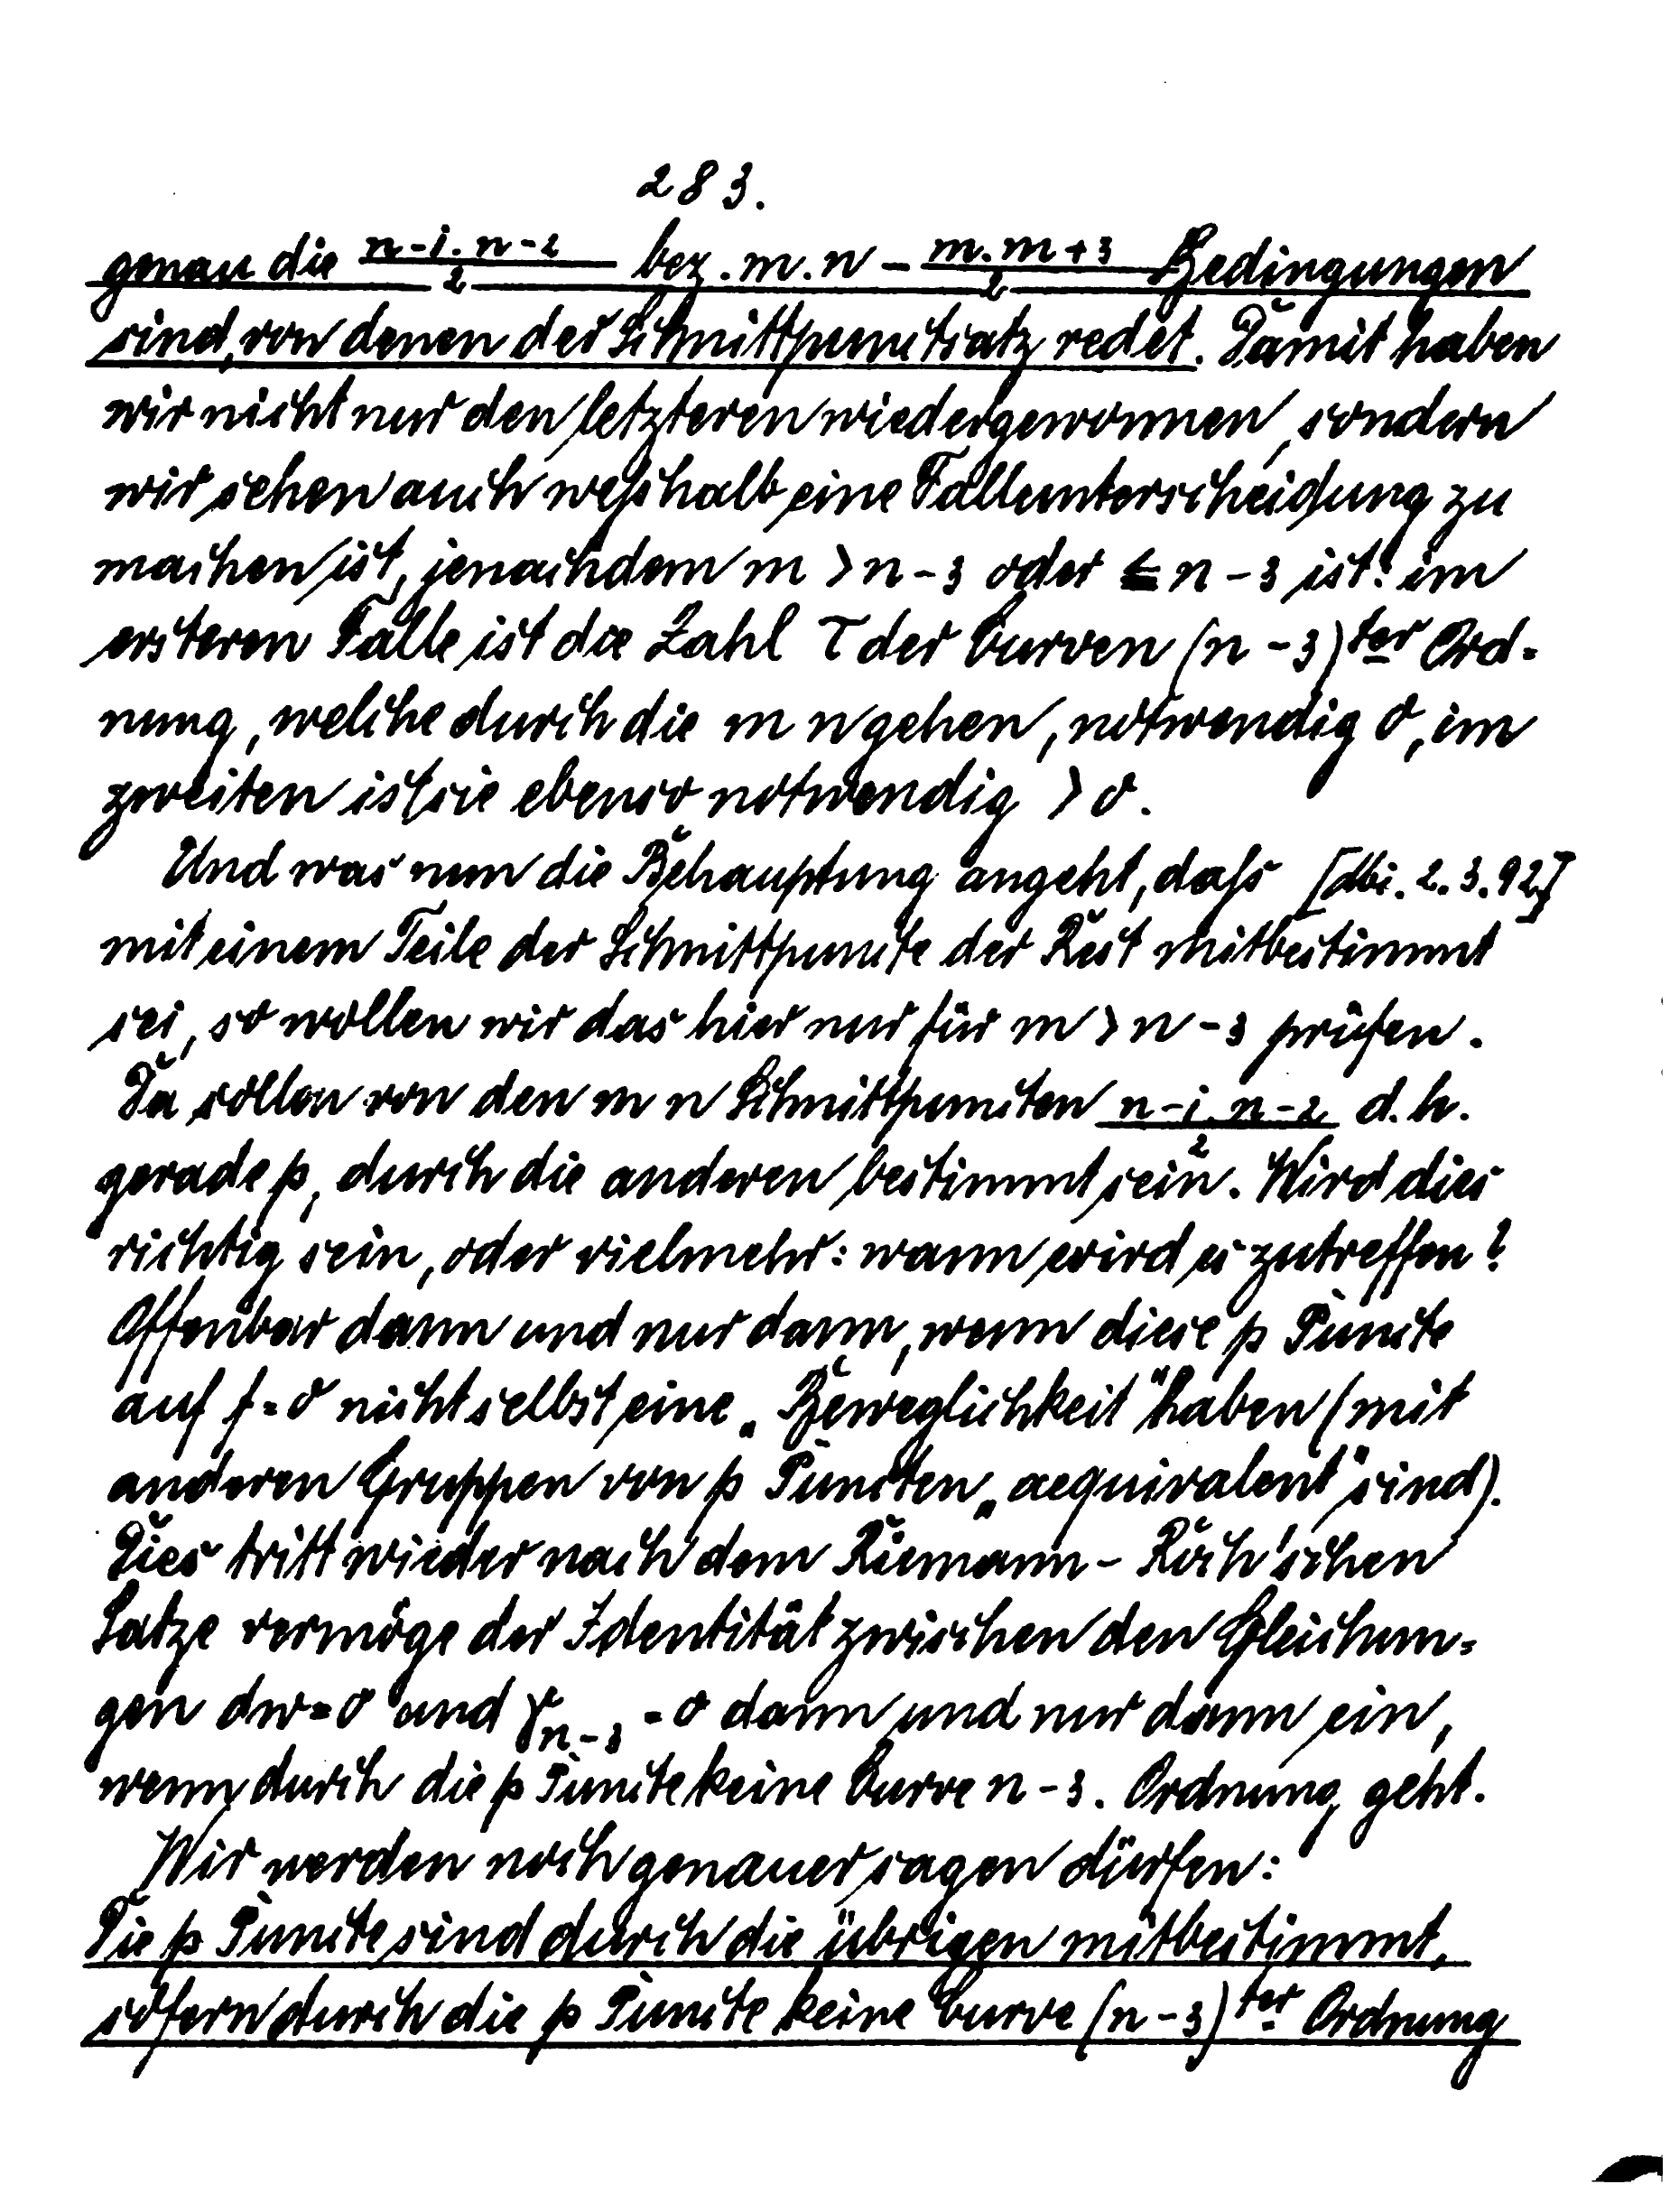 283.
genau die (n-1·n-2)/2 bez. m.n - (m.m+3)/2 Bedingungen
sind, von denen der Schnittpunctsatz redet. Damit haben
wir nicht nur den letzteren wiedergewonnen, sondern
wir sehen auch weßhalb eine Fallunterscheidung zu
machen ist, jenachdem m > n-3 oder ≤ n-3 ist: im
ersteren Falle ist die Zahl τ der Curven (n-3)ter Ord-
nung, welche durch die m n gehen, notwendig 0, im
zweiten ist sie ebenso notwendig > 0.
Und was nun die Behauptung angeht, daß [dbi. 2.3.92]
mit einem Teile der Schnittpuncte der Rest mitbestimmt
sei, so wollen wir das hier nur für m > n-3 prüfen.
Da sollen von den m n Schnittpuncten (n-1·n-2)/2 d.h.
gerade p, durch die anderen bestimmt sein. Wird dies
richtig sein, oder vielmehr: wann wird es zutreffen?
Offenbar dann und nur dann, wenn diese p Puncte
auf f=0 nicht selbst eine „Beweglichkeit" haben (mit
anderen Gruppen von p Puncten „aequivalent" sind).
Dies tritt wieder nach dem Riemann-Roch'schen
Satze vermöge der Identität zwischen den Gleichun-
gen dw=0 und φn-3=0 dann und nur dann ein,
wenn durch die p Puncte keine Curve n-3. Ordnung geht.
Wir werden noch genauer sagen dürfen:
Die p Puncte sind durch die übrigen mitbestimmt,
sofern durch die p Puncte keine Curve (n-3)ter Ordnung